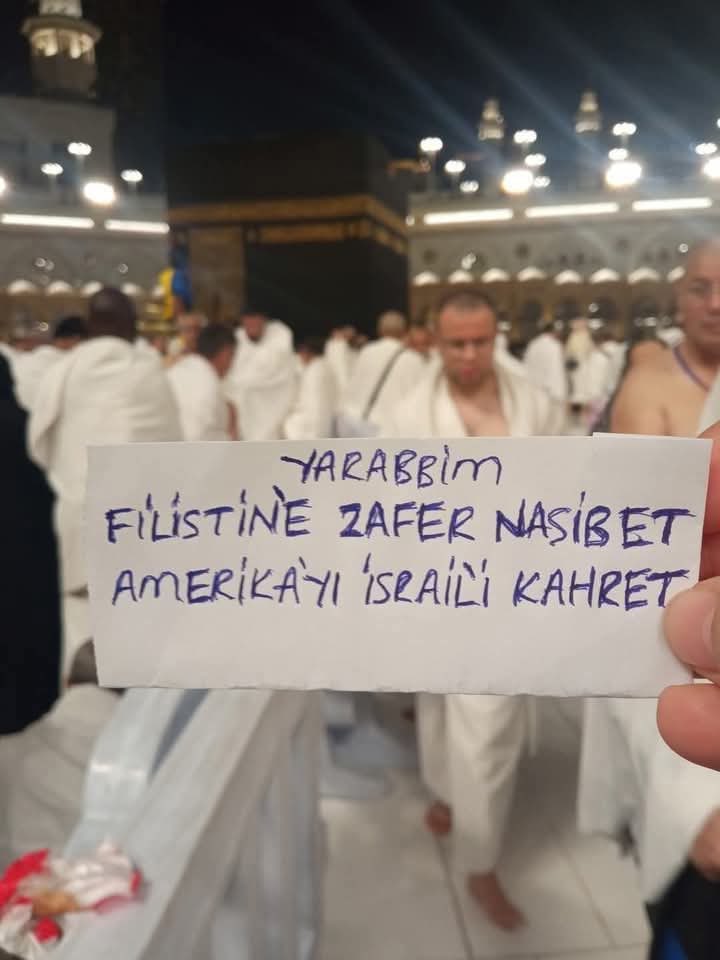 YARABBİM
FİLİSTİN'E ZAFER NASİBET
AMERİKA'YI İSRAİL'İ KAHRET